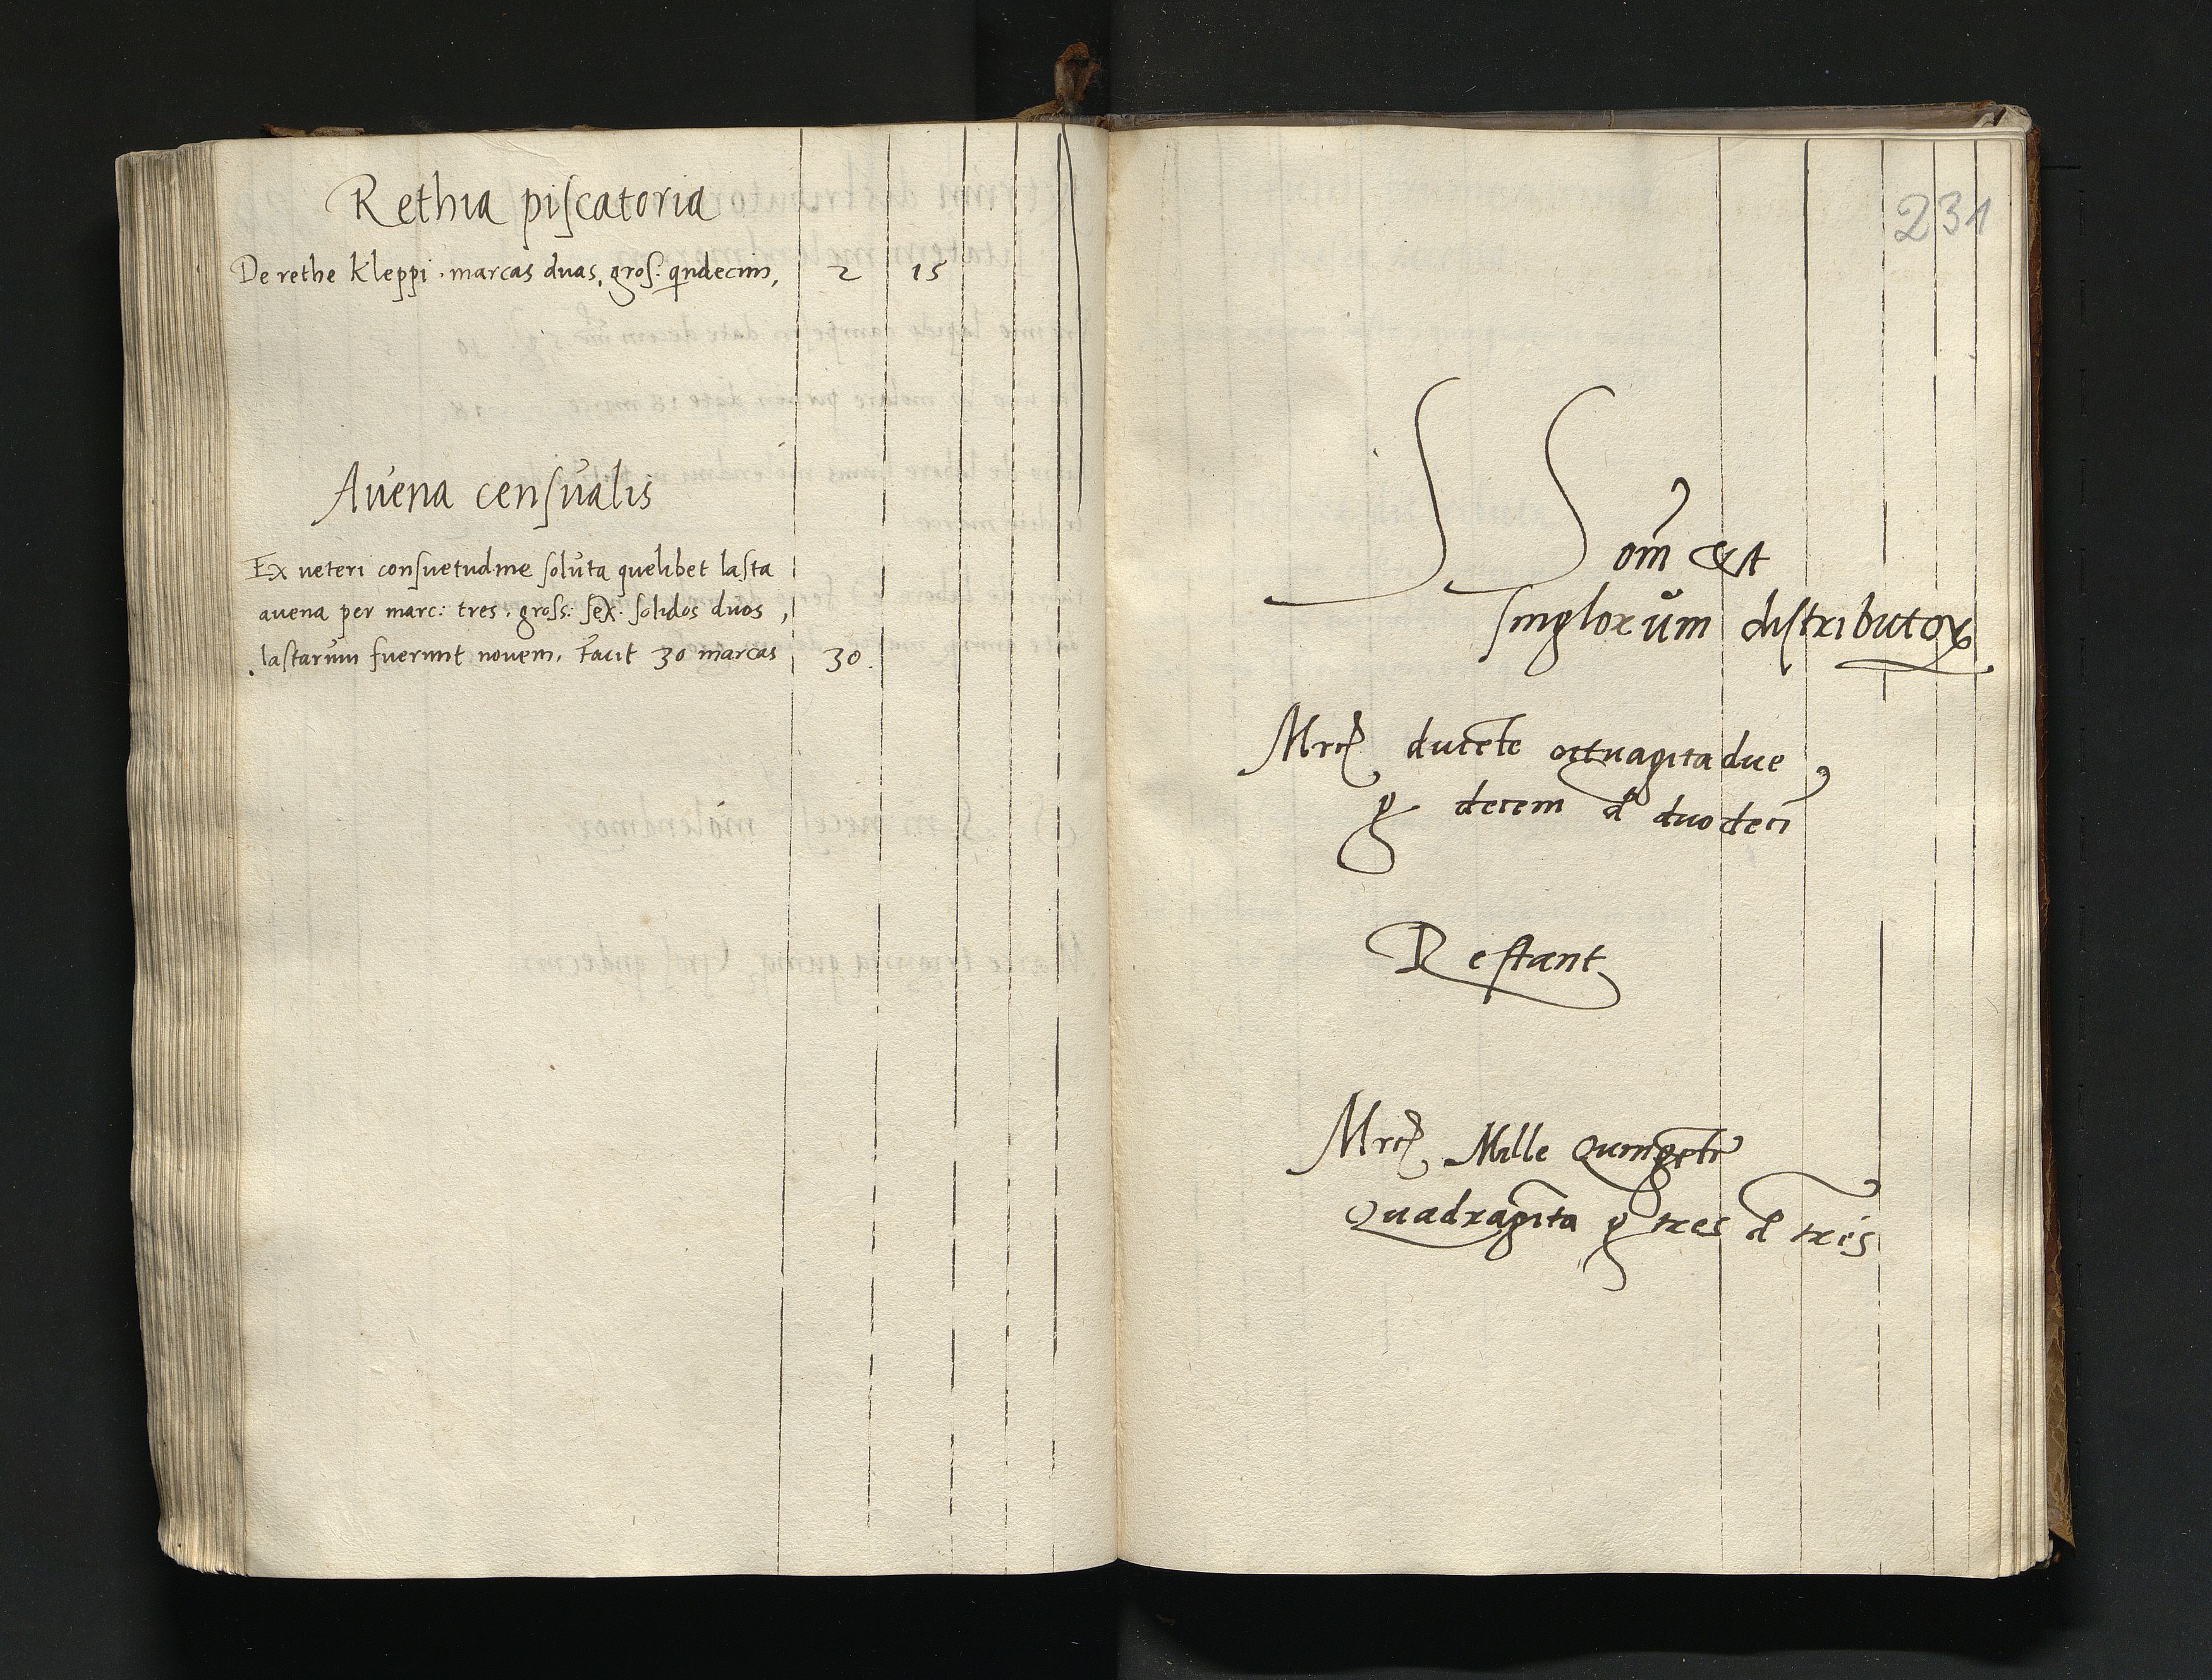 Rethia piſcatoria
De rethe kleppi · marcas duas, groſ: qndecim, 2 15
Auena cenſualis
Ex ueteri conſuetudine ſoluta quelibet laſta
auena per marc: tres · groſs: ſex · ſolidos duos,
laſtarum fuerunt novem, Facit 30 marcas 30.
231
SS om̄ et
ſinglorum diſtributoꝝ
Mrc ducēte octuagīta due
gͬ decem đ duodeci
Reſtant
Mrc Mille Quingēte
Quadragīta gͬ tres đ tres